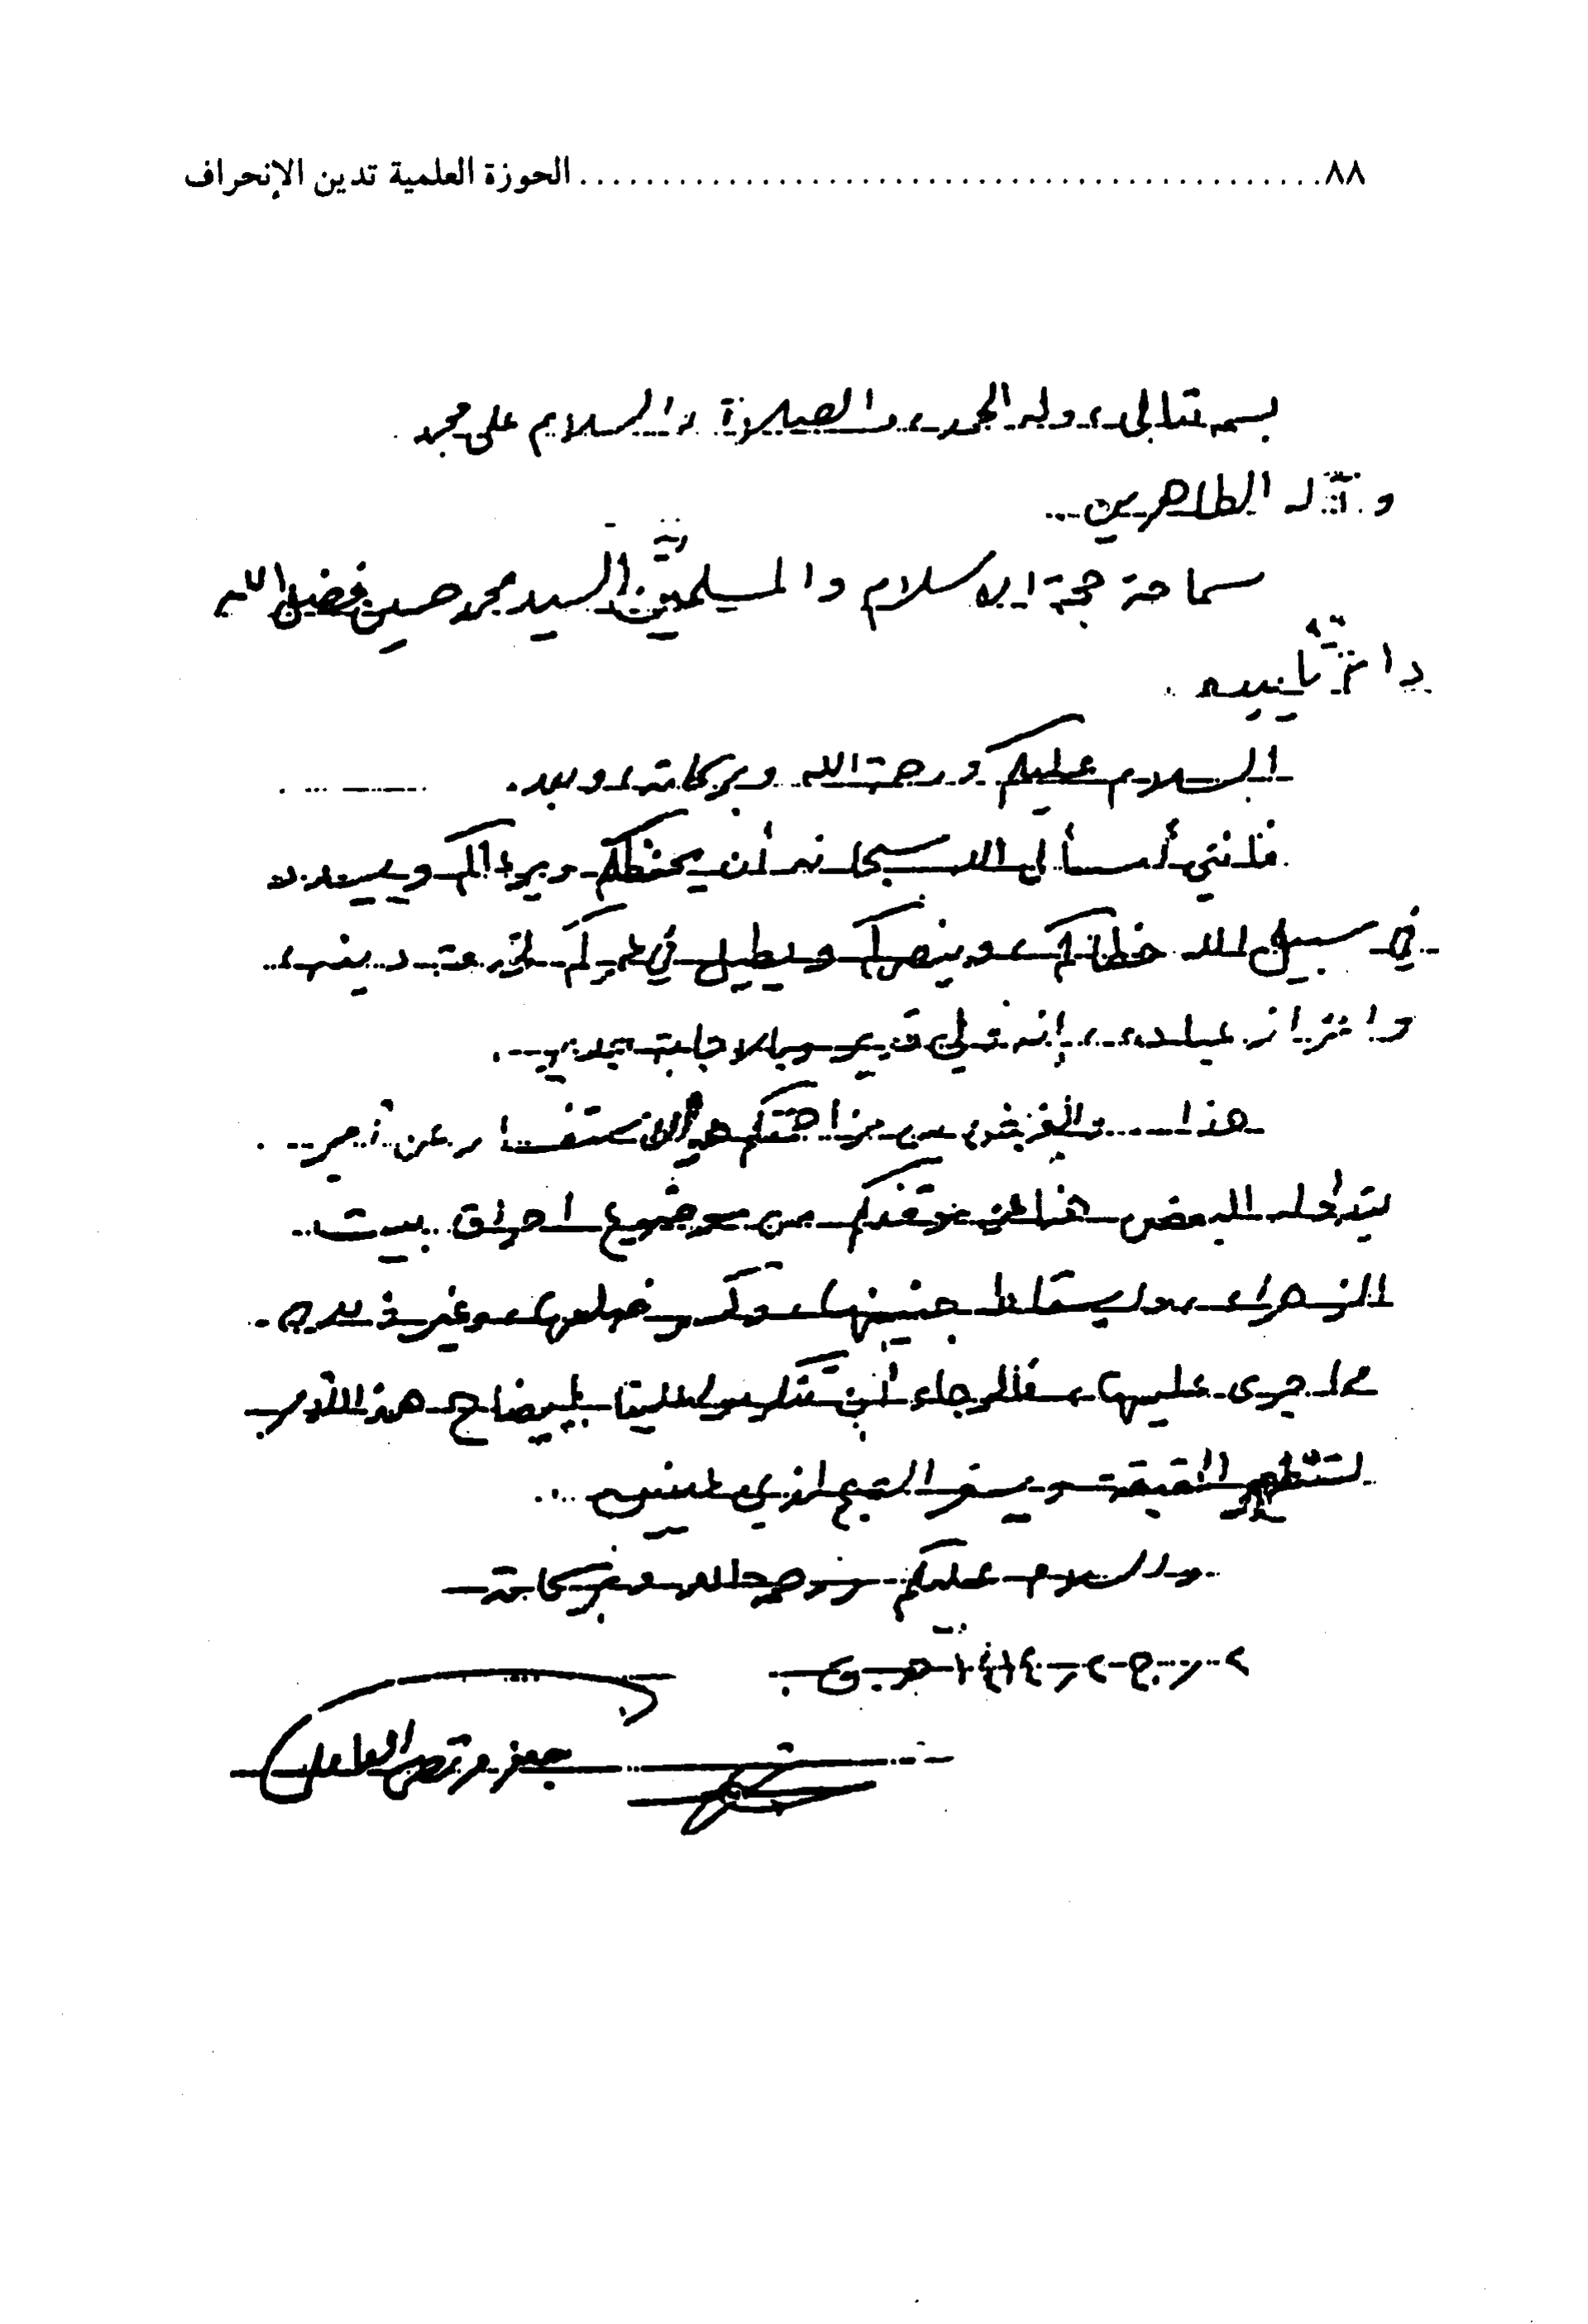 ٨٨ ............................................. الحوزة العلمية تدين الإنحراف
بسمه تعالى، وله الحمد، والصلاة والسلام على محمد
وآله الطاهرين...
سماحة حجة الاسلام والمسلمين السيد محمد حسين فضل الله
دام تأييده.
السلام عليكم ورحمة الله وبركاته، وبعد.
فإنني أسأل الله سبحانه أن يحفظكم ويرعاكم ويسدد
في سبيل الله خطاكم، وينصركم ويطيل في عمركم لخدمة دينه،
واعزاز عباده، إنه ولي قدير وبالاجابة جدير.
هذا... والغرض من مزاحمتكم هو الاستفسار عن أمر
يتداوله البعض هنا عن موقفكم من موضوع احراق بيت
الزهراء، واسقاط جنينها، وكسر ضلعها، وغير ذلك
مما جرى عليها، فالرجاء أن تتكرموا علينا بإيضاح هذا الأمر
لتظهر الحقيقة ويسفر الصبح لذي عينين...
والسلام عليكم ورحمة الله وبركاته
١٤١٤ هـ. ق.
جعفر مرتضى العاملي